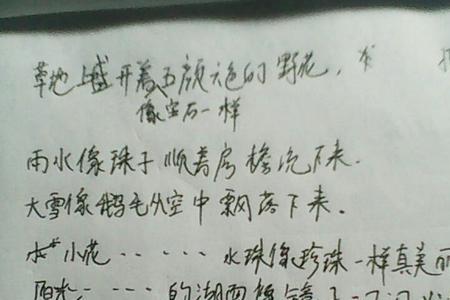 草地上盛开着五颜六色的野花,
像宝石一样
雨水像珠子顺着房檐流下来.
大雪像鹅毛从空中飘落下来.
小花······水珠像珍珠一样真美丽
阳光······的湖面像